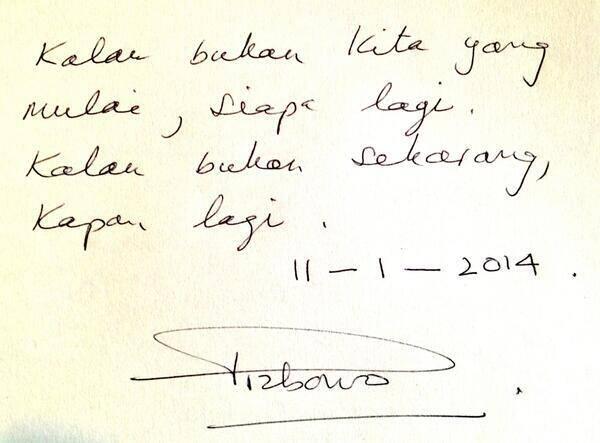 Kalau bukan kita yang
mulai, siapa lagi.
Kalau bukan sekarang,
Kapan lagi.
11 - 1 - 2014.
Prabowo